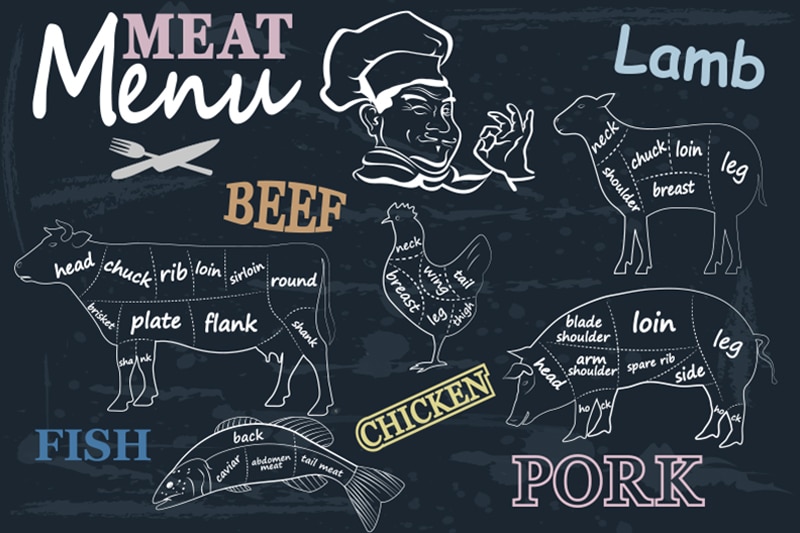 MEAT
Menu
Lamb
neck
chuck
loin
leg
shoulder
breast
BEEF
head
chuck
rib
loin
sirloin
round
brisket
plate
flank
shank
shank
neck
wing
tail
breast
leg
thigh
CHICKEN
blade
shoulder
loin
leg
head
arm
shoulder
spare rib
side
hock
hock
PORK
FISH
back
caviar
abdomen
meat
tail meat